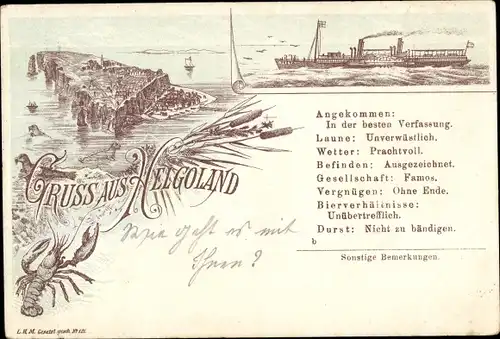 Angekommen:
In der besten Verfassung.
Laune: Unverwüstlich.
Wetter: Prachtvoll.
Befinden: Ausgezeichnet.
Gesellschaft: Famos.
Vergnügen: Ohne Ende.
Bierverhältnisse:
Unübertrefflich.
Durst: Nicht zu bändigen.
b
Sonstige Bemerkungen.
GRUSS AUS HELGOLAND
Wie geht es mit
Ihnen?
L. H. M. Gesetzl. gesch. No 121.